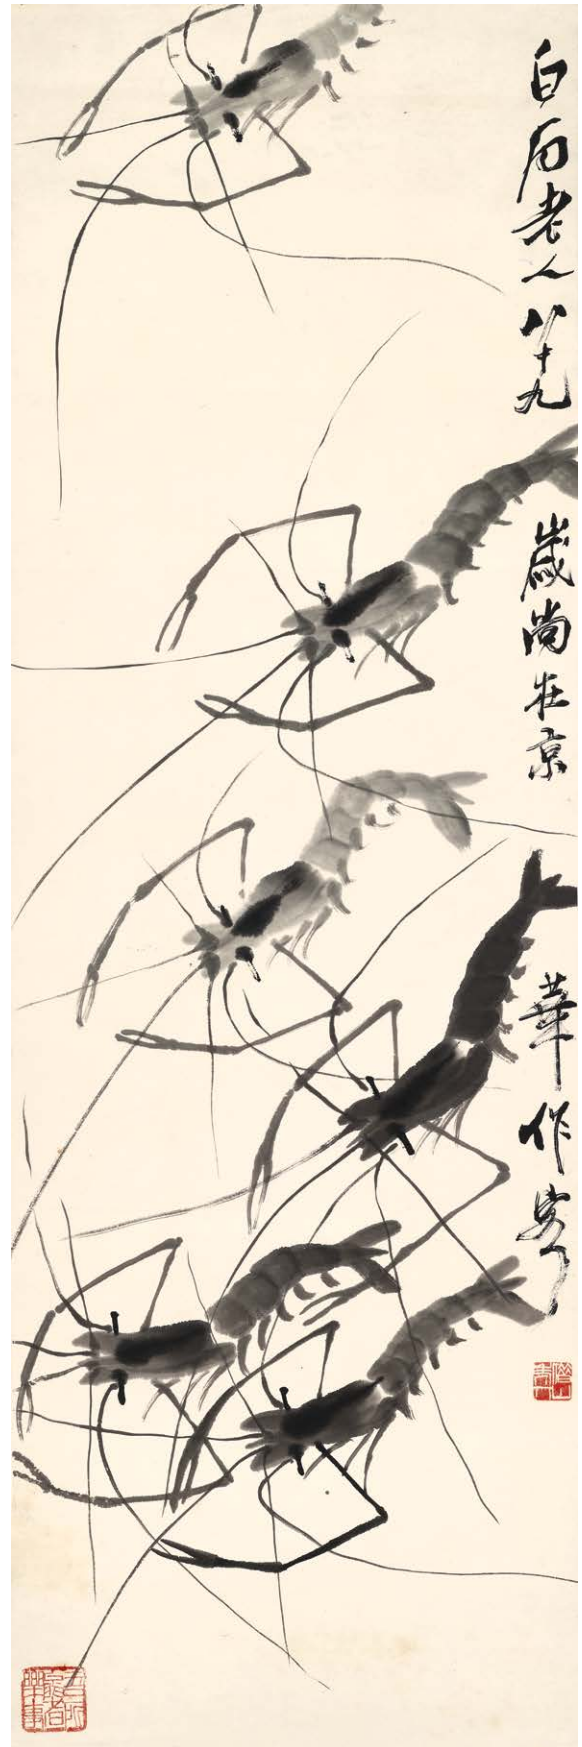 白石老人八十九歲尚在京華作客